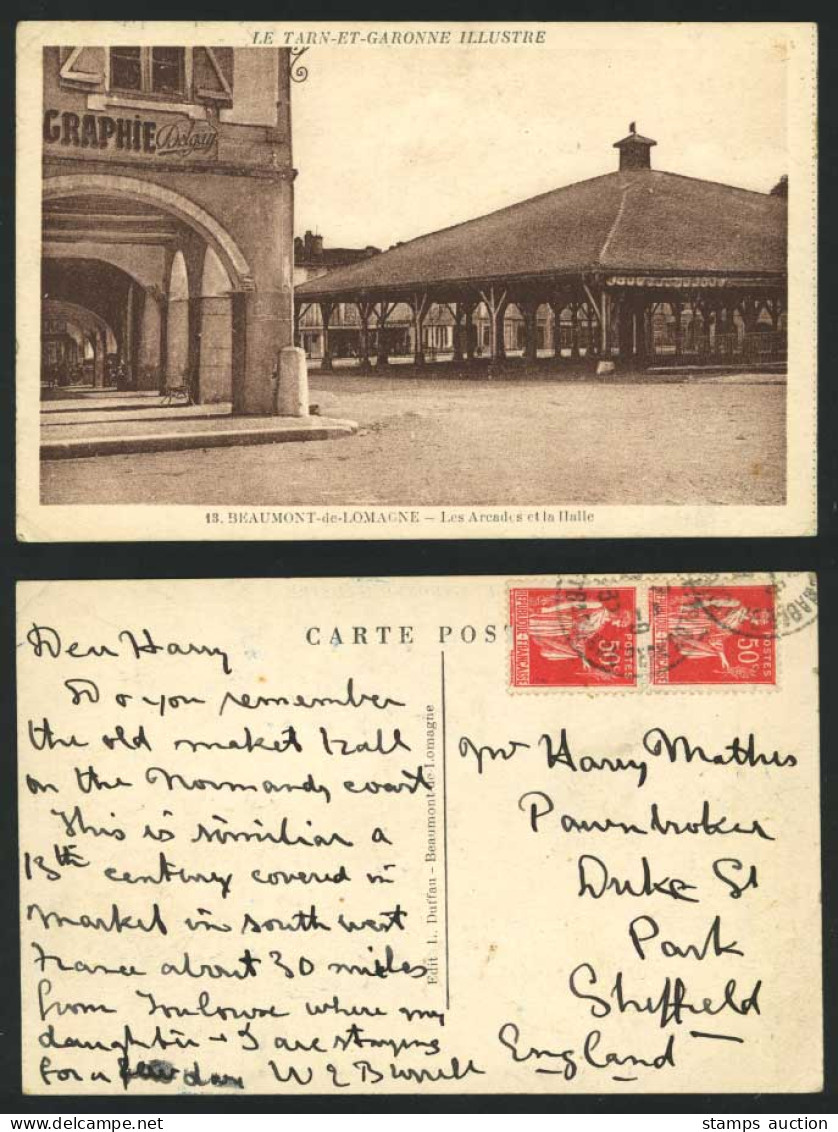 LE TARN-ET-GARONNE ILLUSTRE
GRAPHIE Delguy
13. BEAUMONT-de-LOMAGNE – Les Arcades et la Halle
CARTE POST
REPUBLIQUE FRANÇAISE
POSTES
50c
REPUBLIQUE FRANÇAISE
POSTES
50c
Dear Harry
Do you remember
the old market Hall
on the Normandy coast
This is similiar a
13th century covered in
market in south west
France about 30 miles
from Toulouse where my
daughter + I are staying
for a few days W E Burrell
Edit L. Duffau – Beaumont-de-Lomagne
Mr Harry Mathes
Pawnbroker
Duke St
Park
Sheffield
England
stamps auction